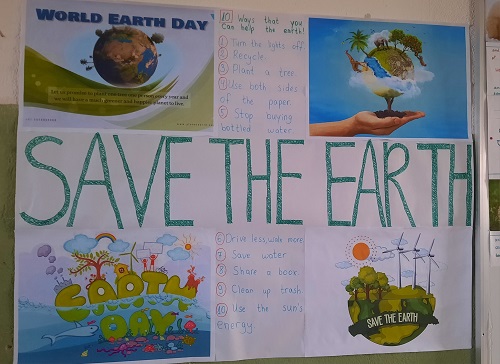 WORLD EARTH DAY
Let us promise to plant
year and
we will have a much greener and happier planet to live.
10 Ways that you
Can help the earth!
1 Turn the lights off
2 Recycle
3 Plant a tree
4 Use both sides
of the paper
5 Stop buying
bottled water
SAVE THE EARTH
EARTH
DAY
6 Drive less, walk more
7 Save water
8 Share a book
9 Clean up trash
10 Use the sun's
energy
SAVE THE EARTH